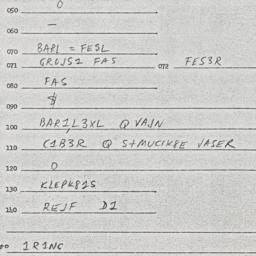 050 0
060 —
070 BARL = FESL
071 GROJS1 FAS 072 FES3R
080 FAS
090 $
100 BAR1L3XL Q VAJN
110 C1B3R Q S+MUCIK8E VASER
120 0
130 KLEPK81S
140 REJF D1
1R1NG